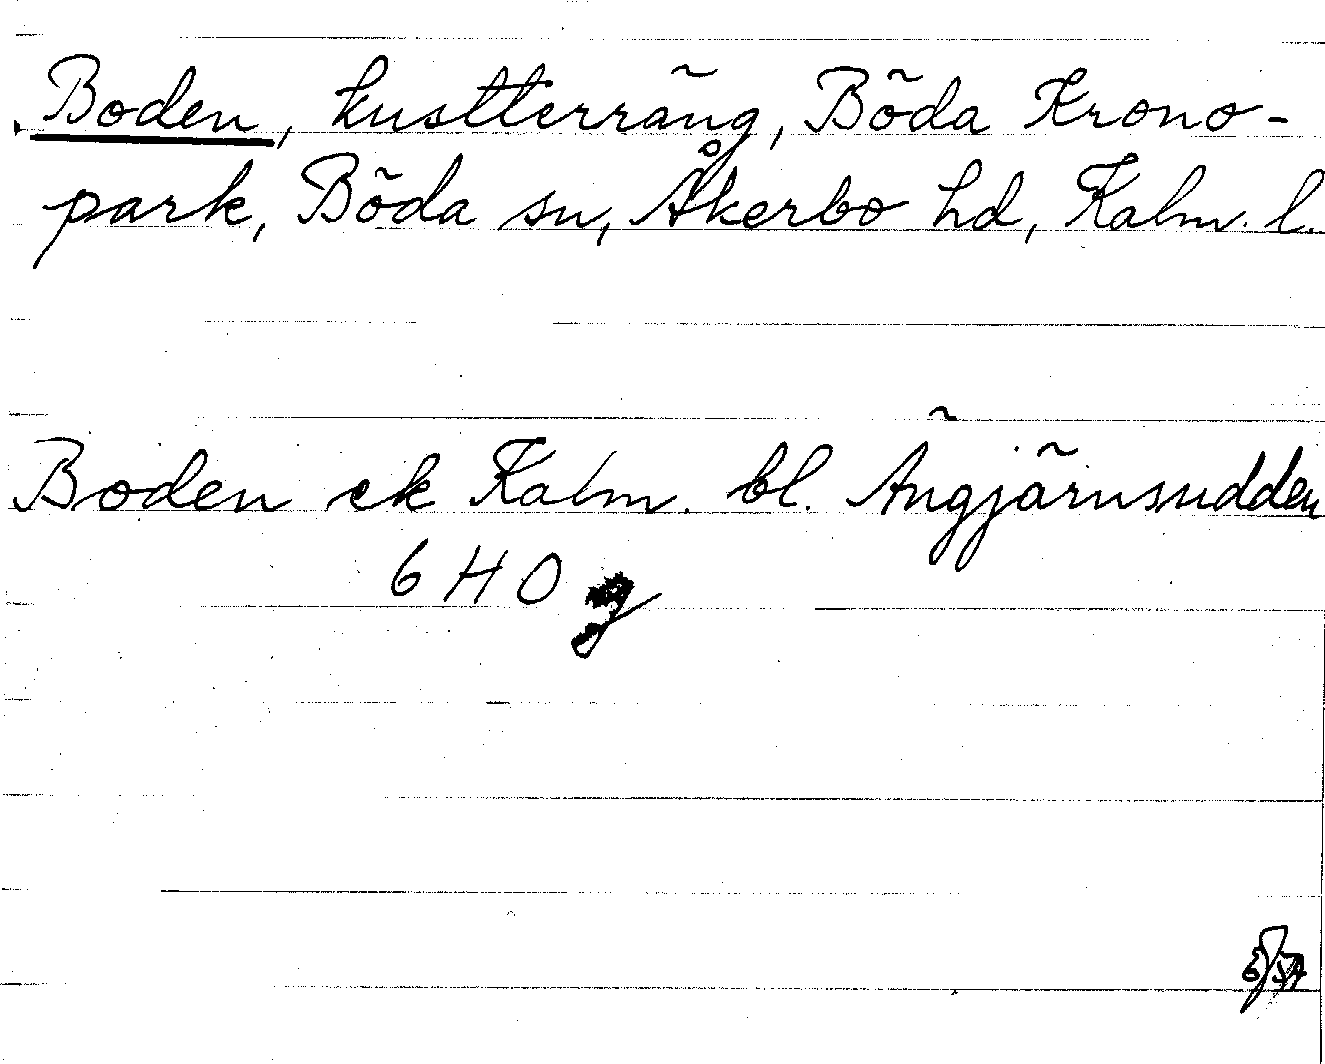 Boden, kustterräng, Böda Krono-
park, Böda sn, Åkerbo hd, Kalm. l.
Boden ek Kalm. bl. Ängjärnsudden
6 H O g